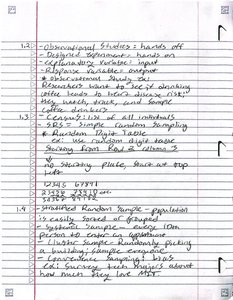 1.2 - Observational Studies = hands off
- Designed experiment = hands on
- explanatory variable = input
- Response variable = output
* observational study ex:
Researchers want to see if drinking
coffee leads to heart disease risk;
they watch, track, and sample
coffee drinkers
1.3 - Census = list of all individuals
- SRS = Simple random sampling
* Random Digit Table
ex: use random digit table
Starting from Row 2 column 3
no starting place, start at top
left
12345 67891
1.4 - Stratified Random Sample - population
is easily sorted or grouped
- Systematic sample - every 10th
person to enter an
- Cluster Sample - Randomly picking
a building, sample everyone
- Convenience Sampling: bias
ex: Survey tech majors about
how much they love